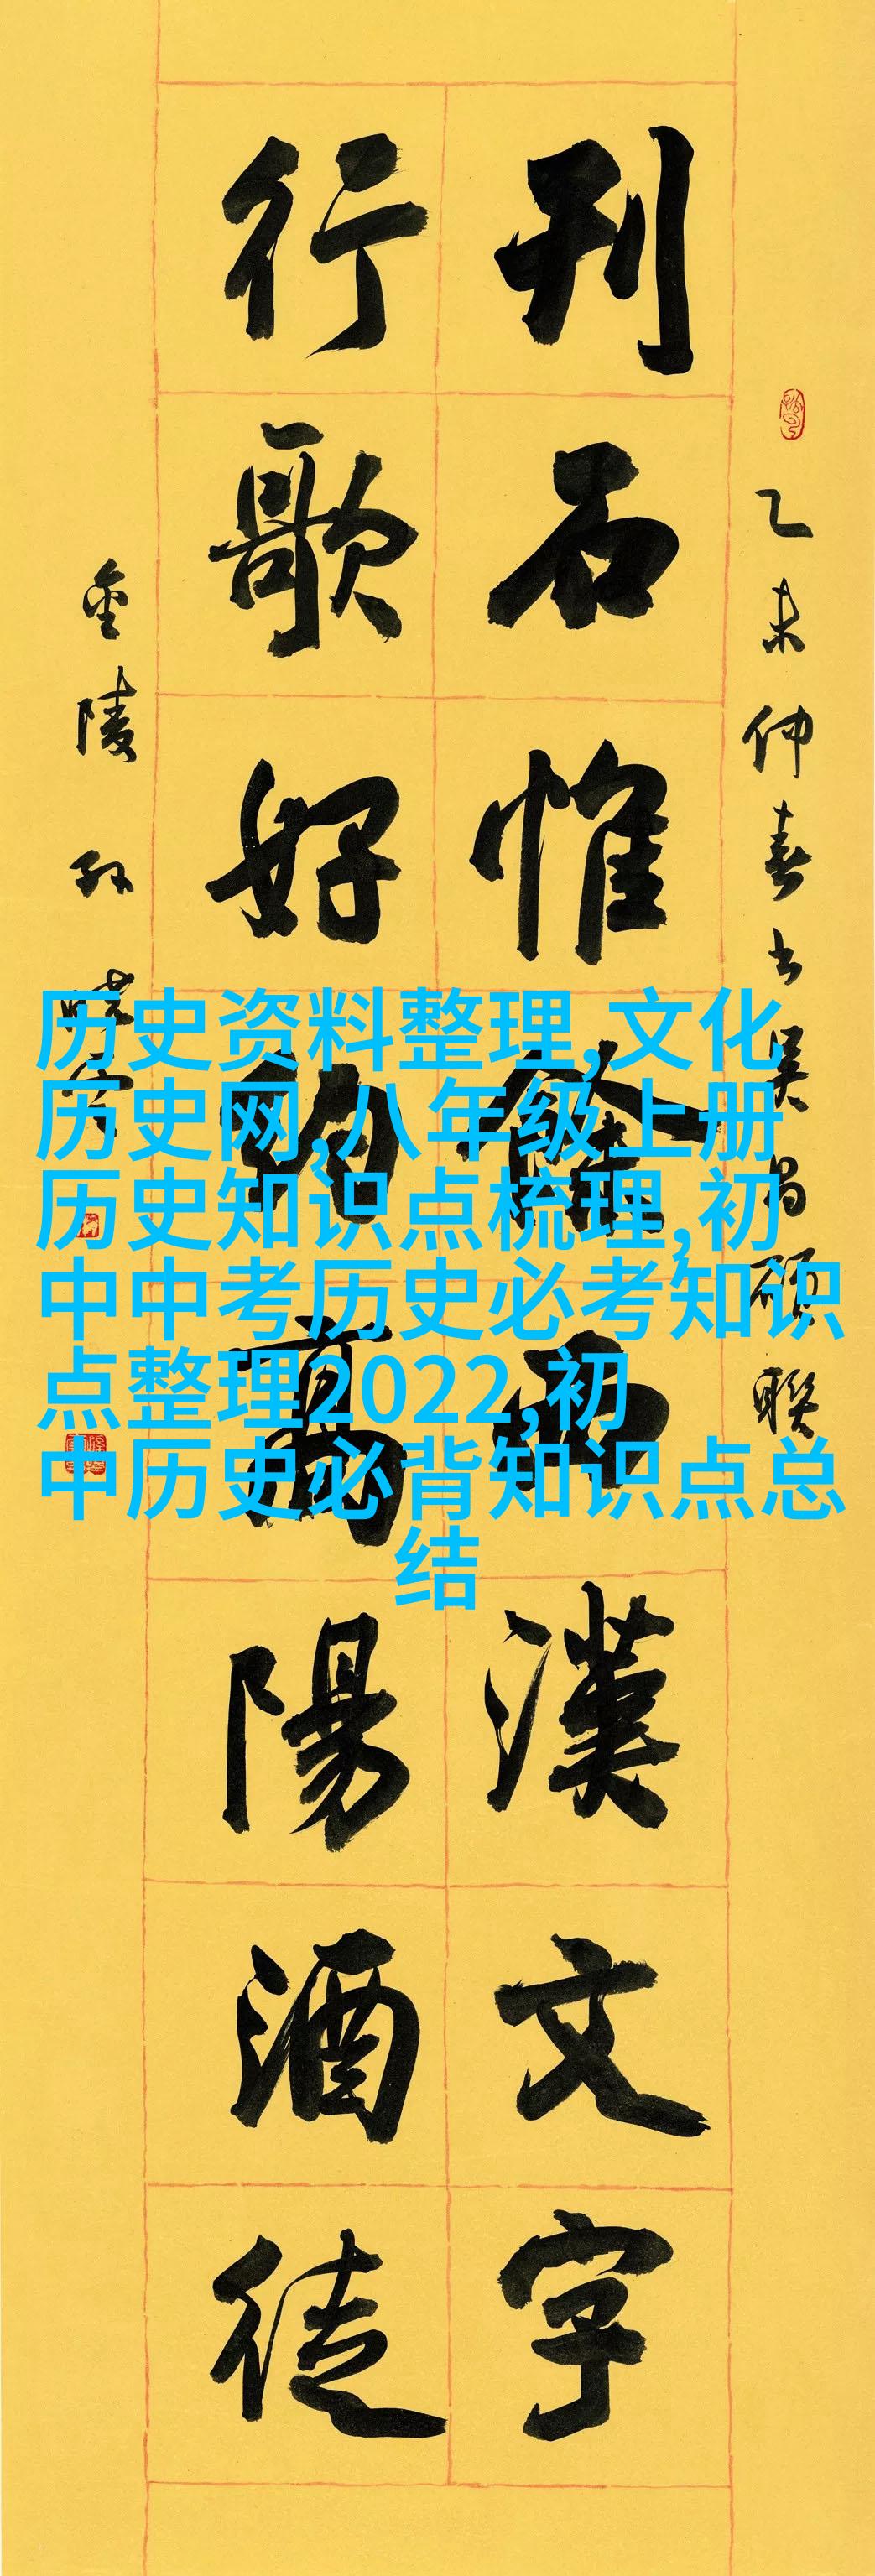 乙未仲春书吴昌碩聯
刊石惟餘西漢文字
行歌好高陽酒徒
金陵孙晓雲
历史资料整理,文化
历史网,八年级上册
历史知识点梳理,初
中中考历史必考知识
点整理2022,初
中历史必背知识点总
结